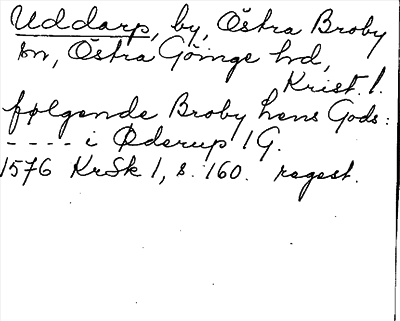 Uddarp, by, Östra Broby
sn, Östra Göinge hd,
Krist. l.
følgende Broby Lens Gods:
- - - - i Øderup 1 G.
1576 KrSk 1, s. 160. regest.